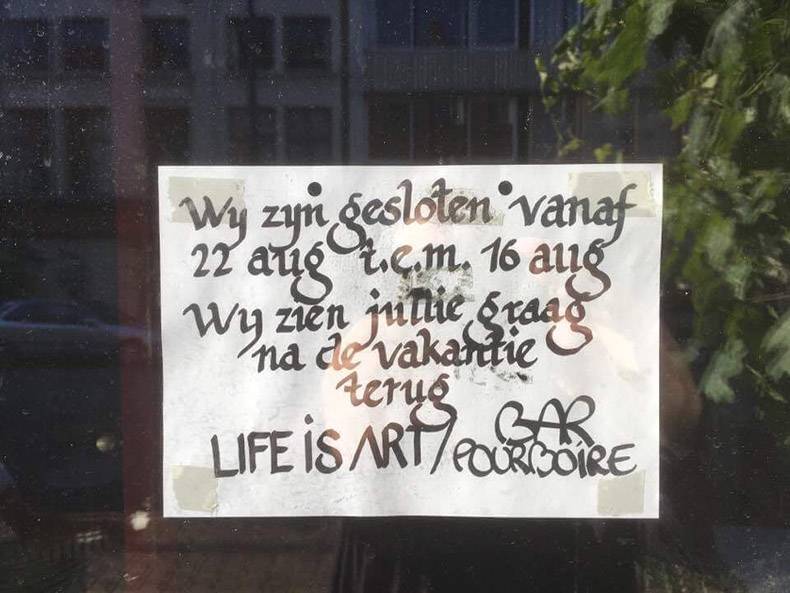 Wij zijn gesloten vanaf
22 aug t.e.m. 16 aug
Wij zien jullie graag
na de vakantie
terug
LIFE iS ART / BAR
POURBOIRE